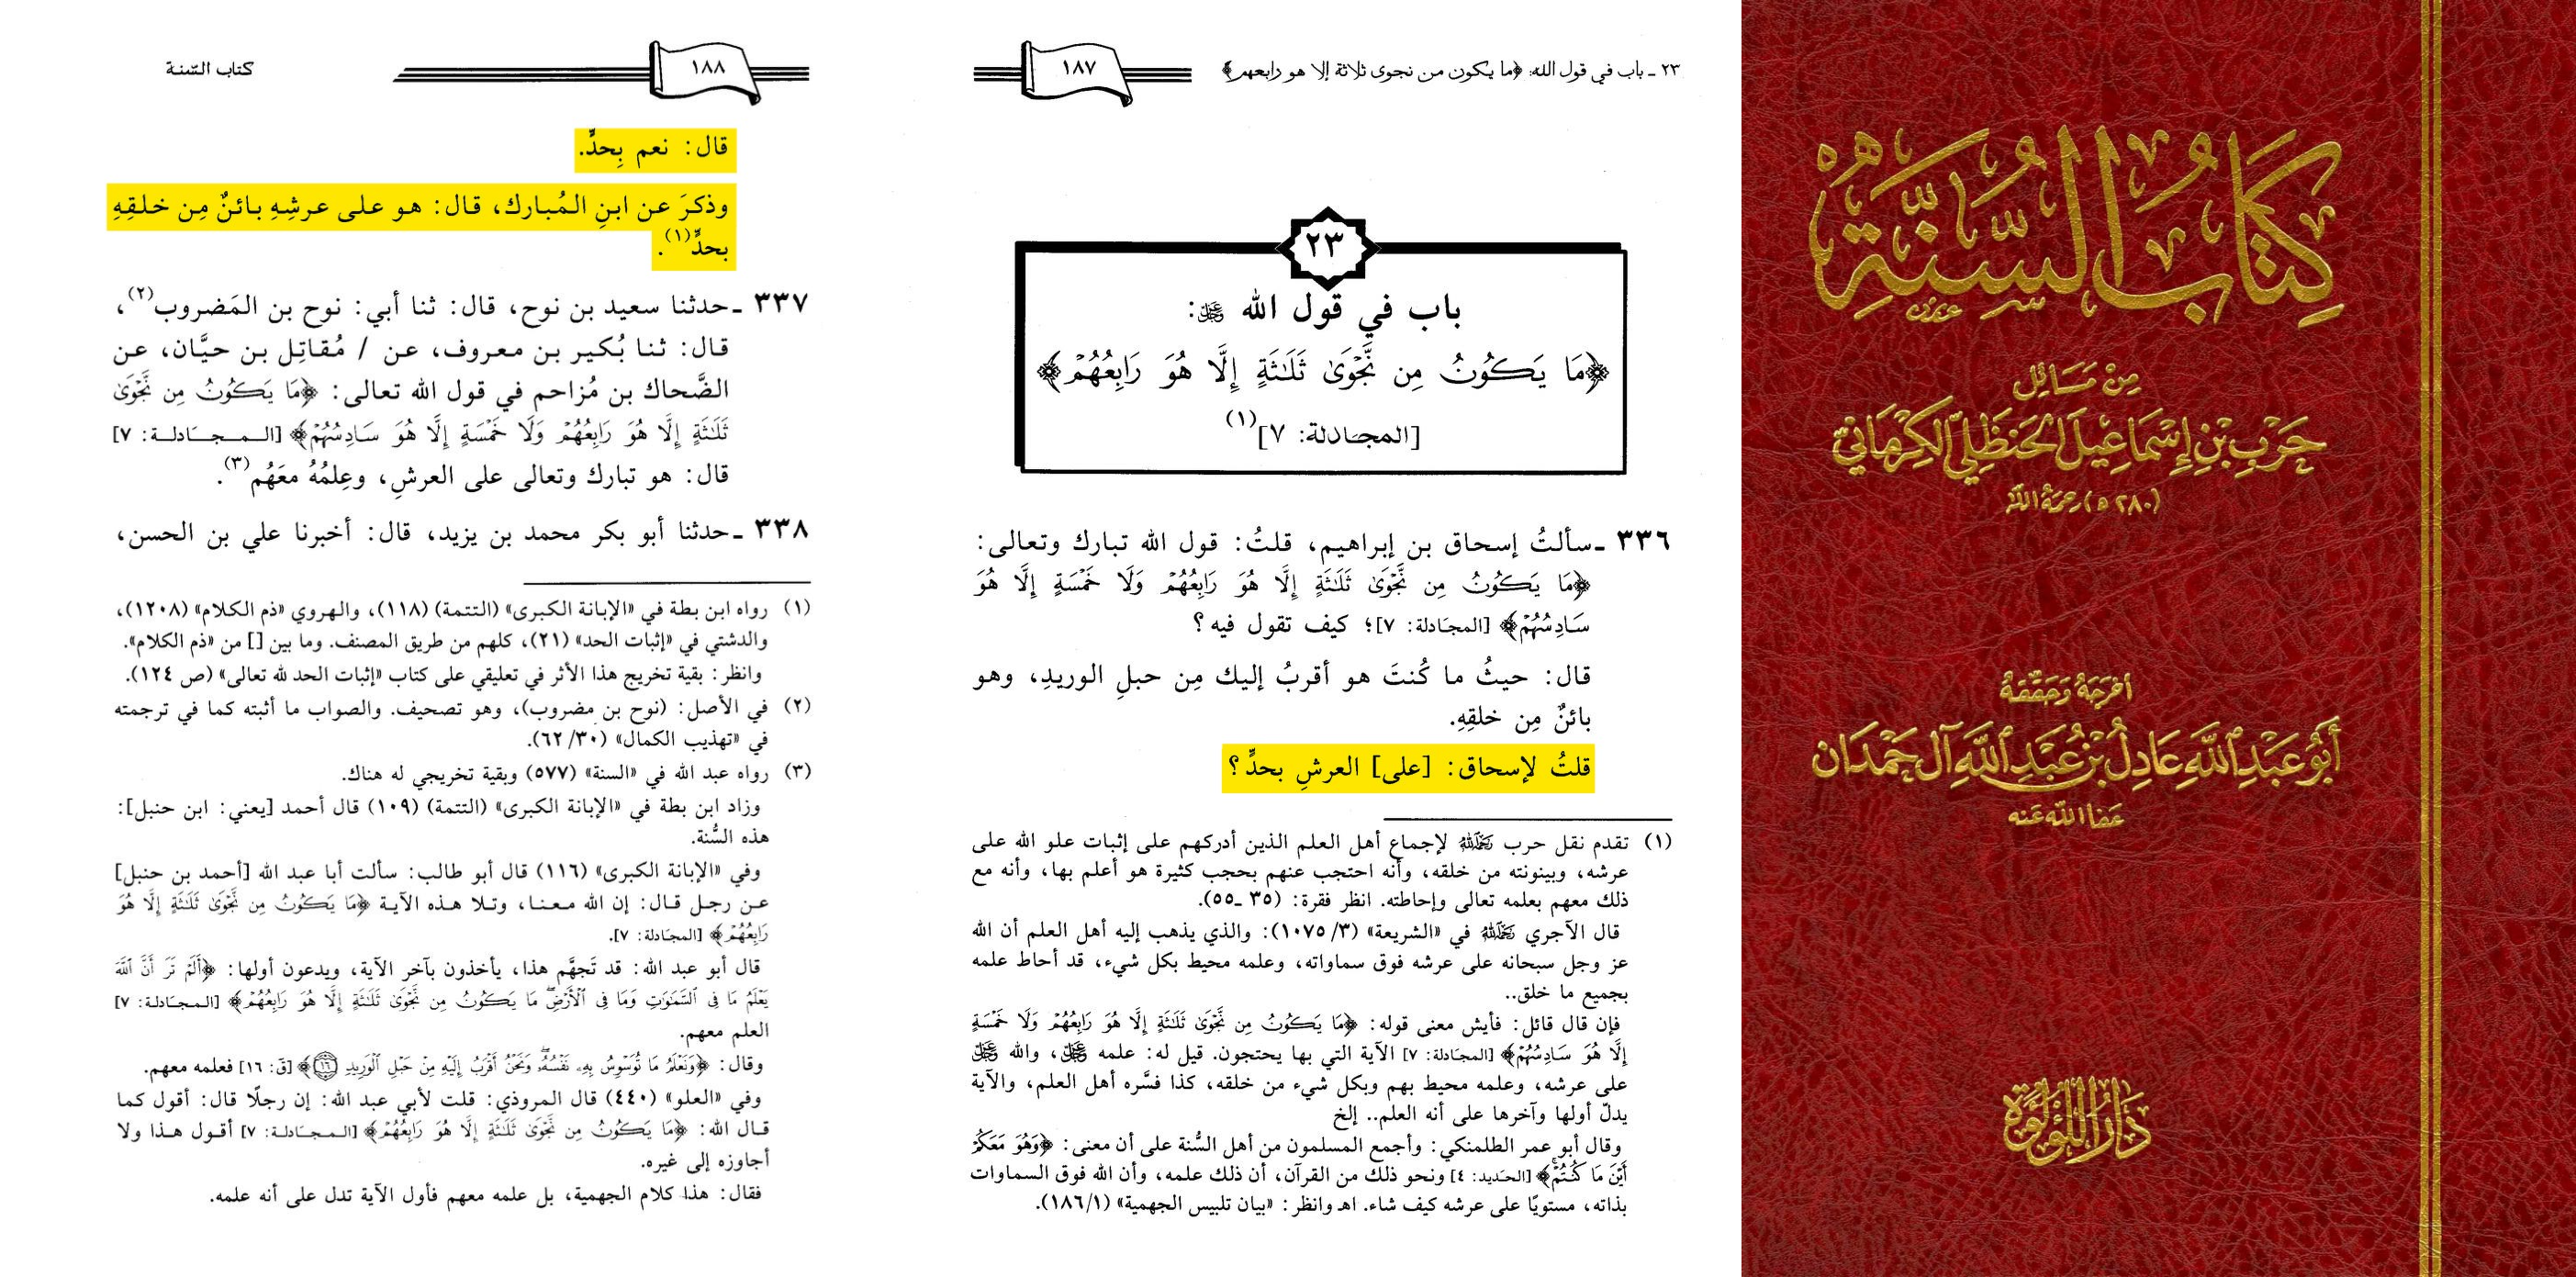 كتاب السنة
من مسائل
حرب بن إسماعيل الحنظلي الكرماني
(٢٨٠هـ) رحمه الله
أخرجه وحققه
أبو عبد الله عادل بن عبد الله آل حمدان
عفا الله عنه
دار اللؤلؤة
٢٣ ـ باب في قول الله: ﴿ما يكون من نجوى ثلاثة إلا هو رابعهم﴾
١٨٧
٢٣
باب في قول الله ﷻ:
﴿مَا يَكُونُ مِن نَّجْوَىٰ ثَلَـٰثَةٍ إِلَّا هُوَ رَابِعُهُمْ﴾
[المجادلة: ٧](١)
٣٣٦ ـ سألتُ إسحاق بن إبراهيم، قلتُ: قول الله تبارك وتعالى:
﴿مَا يَكُونُ مِن نَّجْوَىٰ ثَلَـٰثَةٍ إِلَّا هُوَ رَابِعُهُمْ وَلَا خَمْسَةٍ إِلَّا هُوَ
سَادِسُهُمْ﴾ [المجادلة: ٧]؛ كيف تقول فيه؟
قال: حيثُ ما كُنتَ هو أقربُ إليك مِن حبلِ الوريدِ، وهو
بائنٌ مِن خلقِهِ.
قلتُ لإسحاق: [على] العرشِ بحدٍّ؟
(١) تقدم نقل حرب رَحِمَهُ اللهُ لإجماع أهل العلم الذين أدركهم على إثبات علو الله على
عرشه، وبينونته من خلقه، وأنه احتجب عنهم بحجب كثيرة هو أعلم بها، وأنه مع
ذلك معهم بعلمه تعالى وإحاطته. انظر فقرة: (٣٥ ـ ٥٥).
قال الآجري رَحِمَهُ اللهُ في «الشريعة» (٣/ ١٠٧٥): والذي يذهب إليه أهل العلم أن الله
عز وجل سبحانه على عرشه فوق سماواته، وعلمه محيط بكل شيء، قد أحاط علمه
بجميع ما خلق..
فإن قال قائل: فأيش معنى قوله: ﴿مَا يَكُونُ مِن نَّجْوَىٰ ثَلَـٰثَةٍ إِلَّا هُوَ رَابِعُهُمْ وَلَا خَمْسَةٍ
إِلَّا هُوَ سَادِسُهُمْ﴾ [المجادلة: ٧] الآية التي بها يحتجون. قيل له: علمه ﷻ، والله ﷻ
على عرشه، وعلمه محيط بهم وبكل شيء من خلقه، كذا فسَّره أهل العلم، والآية
يدلّ أولها وآخرها على أنه العلم.. إلخ
وقال أبو عمر الطلمنكي: وأجمع المسلمون من أهل السُّنة على أن معنى: ﴿وَهُوَ مَعَكُمْ
أَيْنَ مَا كُنتُمْ﴾ [الحديد: ٤] ونحو ذلك من القرآن، أن ذلك علمه، وأن الله فوق السماوات
بذاته، مستويًا على عرشه كيف شاء. اهـ وانظر: «بيان تلبيس الجهمية» (١٨٦/١).
١٨٨
كتاب السّنة
قال: نعم بِحدٍّ.
وذكرَ عن ابنِ المُبارك، قال: هو على عرشِهِ بائنٌ مِن خلقِهِ
بحدٍّ(١).
٣٣٧ ـ حدثنا سعيد بن نوح، قال: ثنا أبي: نوح بن المَضروب(٢)،
قال: ثنا بُكير بن معروف، عن / مُقاتِل بن حيَّان، عن
الضَّحاك بن مُزاحم في قول الله تعالى: ﴿مَا يَكُونُ مِن نَّجْوَىٰ
ثَلَـٰثَةٍ إِلَّا هُوَ رَابِعُهُمْ وَلَا خَمْسَةٍ إِلَّا هُوَ سَادِسُهُمْ﴾ [المجادلة: ٧]
قال: هو تبارك وتعالى على العرشِ، وعِلمُهُ معَهُم(٣).
٣٣٨ ـ حدثنا أبو بكر محمد بن يزيد، قال: أخبرنا علي بن الحسن،
(١) رواه ابن بطة في «الإبانة الكبرى» (التتمة) (١١٨)، والهروي «ذم الكلام» (١٢٠٨)،
والدشتي في «إثبات الحد» (٢١)، كلهم من طريق المصنف. وما بين [] من «ذم الكلام».
وانظر: بقية تخريج هذا الأثر في تعليقي على كتاب «إثبات الحد لله تعالى» (ص ١٢٤).
(٢) في الأصل: (نوح بن مضروب)، وهو تصحيف. والصواب ما أثبته كما في ترجمته
في «تهذيب الكمال» (٣٠/ ٦٢).
(٣) رواه عبد الله في «السنة» (٥٧٧) وبقية تخريجي له هناك.
وزاد ابن بطة في «الإبانة الكبرى» (التتمة) (١٠٩) قال أحمد [يعني: ابن حنبل]:
هذه السُّنة.
وفي «الإبانة الكبرى» (١١٦) قال أبو طالب: سألت أبا عبد الله [أحمد بن حنبل]
عن رجل قال: إن الله معنا، وتلا هذه الآية ﴿مَا يَكُونُ مِن نَّجْوَىٰ ثَلَـٰثَةٍ إِلَّا هُوَ
رَابِعُهُمْ﴾ [المجادلة: ٧].
قال أبو عبد الله: قد تَجهَّم هذا، يأخذون بآخر الآية، ويدعون أولها: ﴿أَلَمْ تَرَ أَنَّ ٱللَّهَ
يَعْلَمُ مَا فِى ٱلسَّمَـٰوَٰتِ وَمَا فِى ٱلْأَرْضِ مَا يَكُونُ مِن نَّجْوَىٰ ثَلَـٰثَةٍ إِلَّا هُوَ رَابِعُهُمْ﴾ [المجادلة: ٧]
العلم معهم.
وقال: ﴿وَنَعْلَمُ مَا تُوَسْوِسُ بِهِۦ نَفْسُهُۥ وَنَحْنُ أَقْرَبُ إِلَيْهِ مِنْ حَبْلِ ٱلْوَرِيدِ ١٦﴾ [ق: ١٦] فعلمه معهم.
وفي «العلو» (٤٤٠) قال المروذي: قلت لأبي عبد الله: إن رجلًا قال: أقول كما
قال الله: ﴿مَا يَكُونُ مِن نَّجْوَىٰ ثَلَـٰثَةٍ إِلَّا هُوَ رَابِعُهُمْ﴾ [المجادلة: ٧] أقول هذا ولا
أجاوزه إلى غيره.
فقال: هذا كلام الجهمية، بل علمه معهم فأول الآية تدل على أنه علمه.